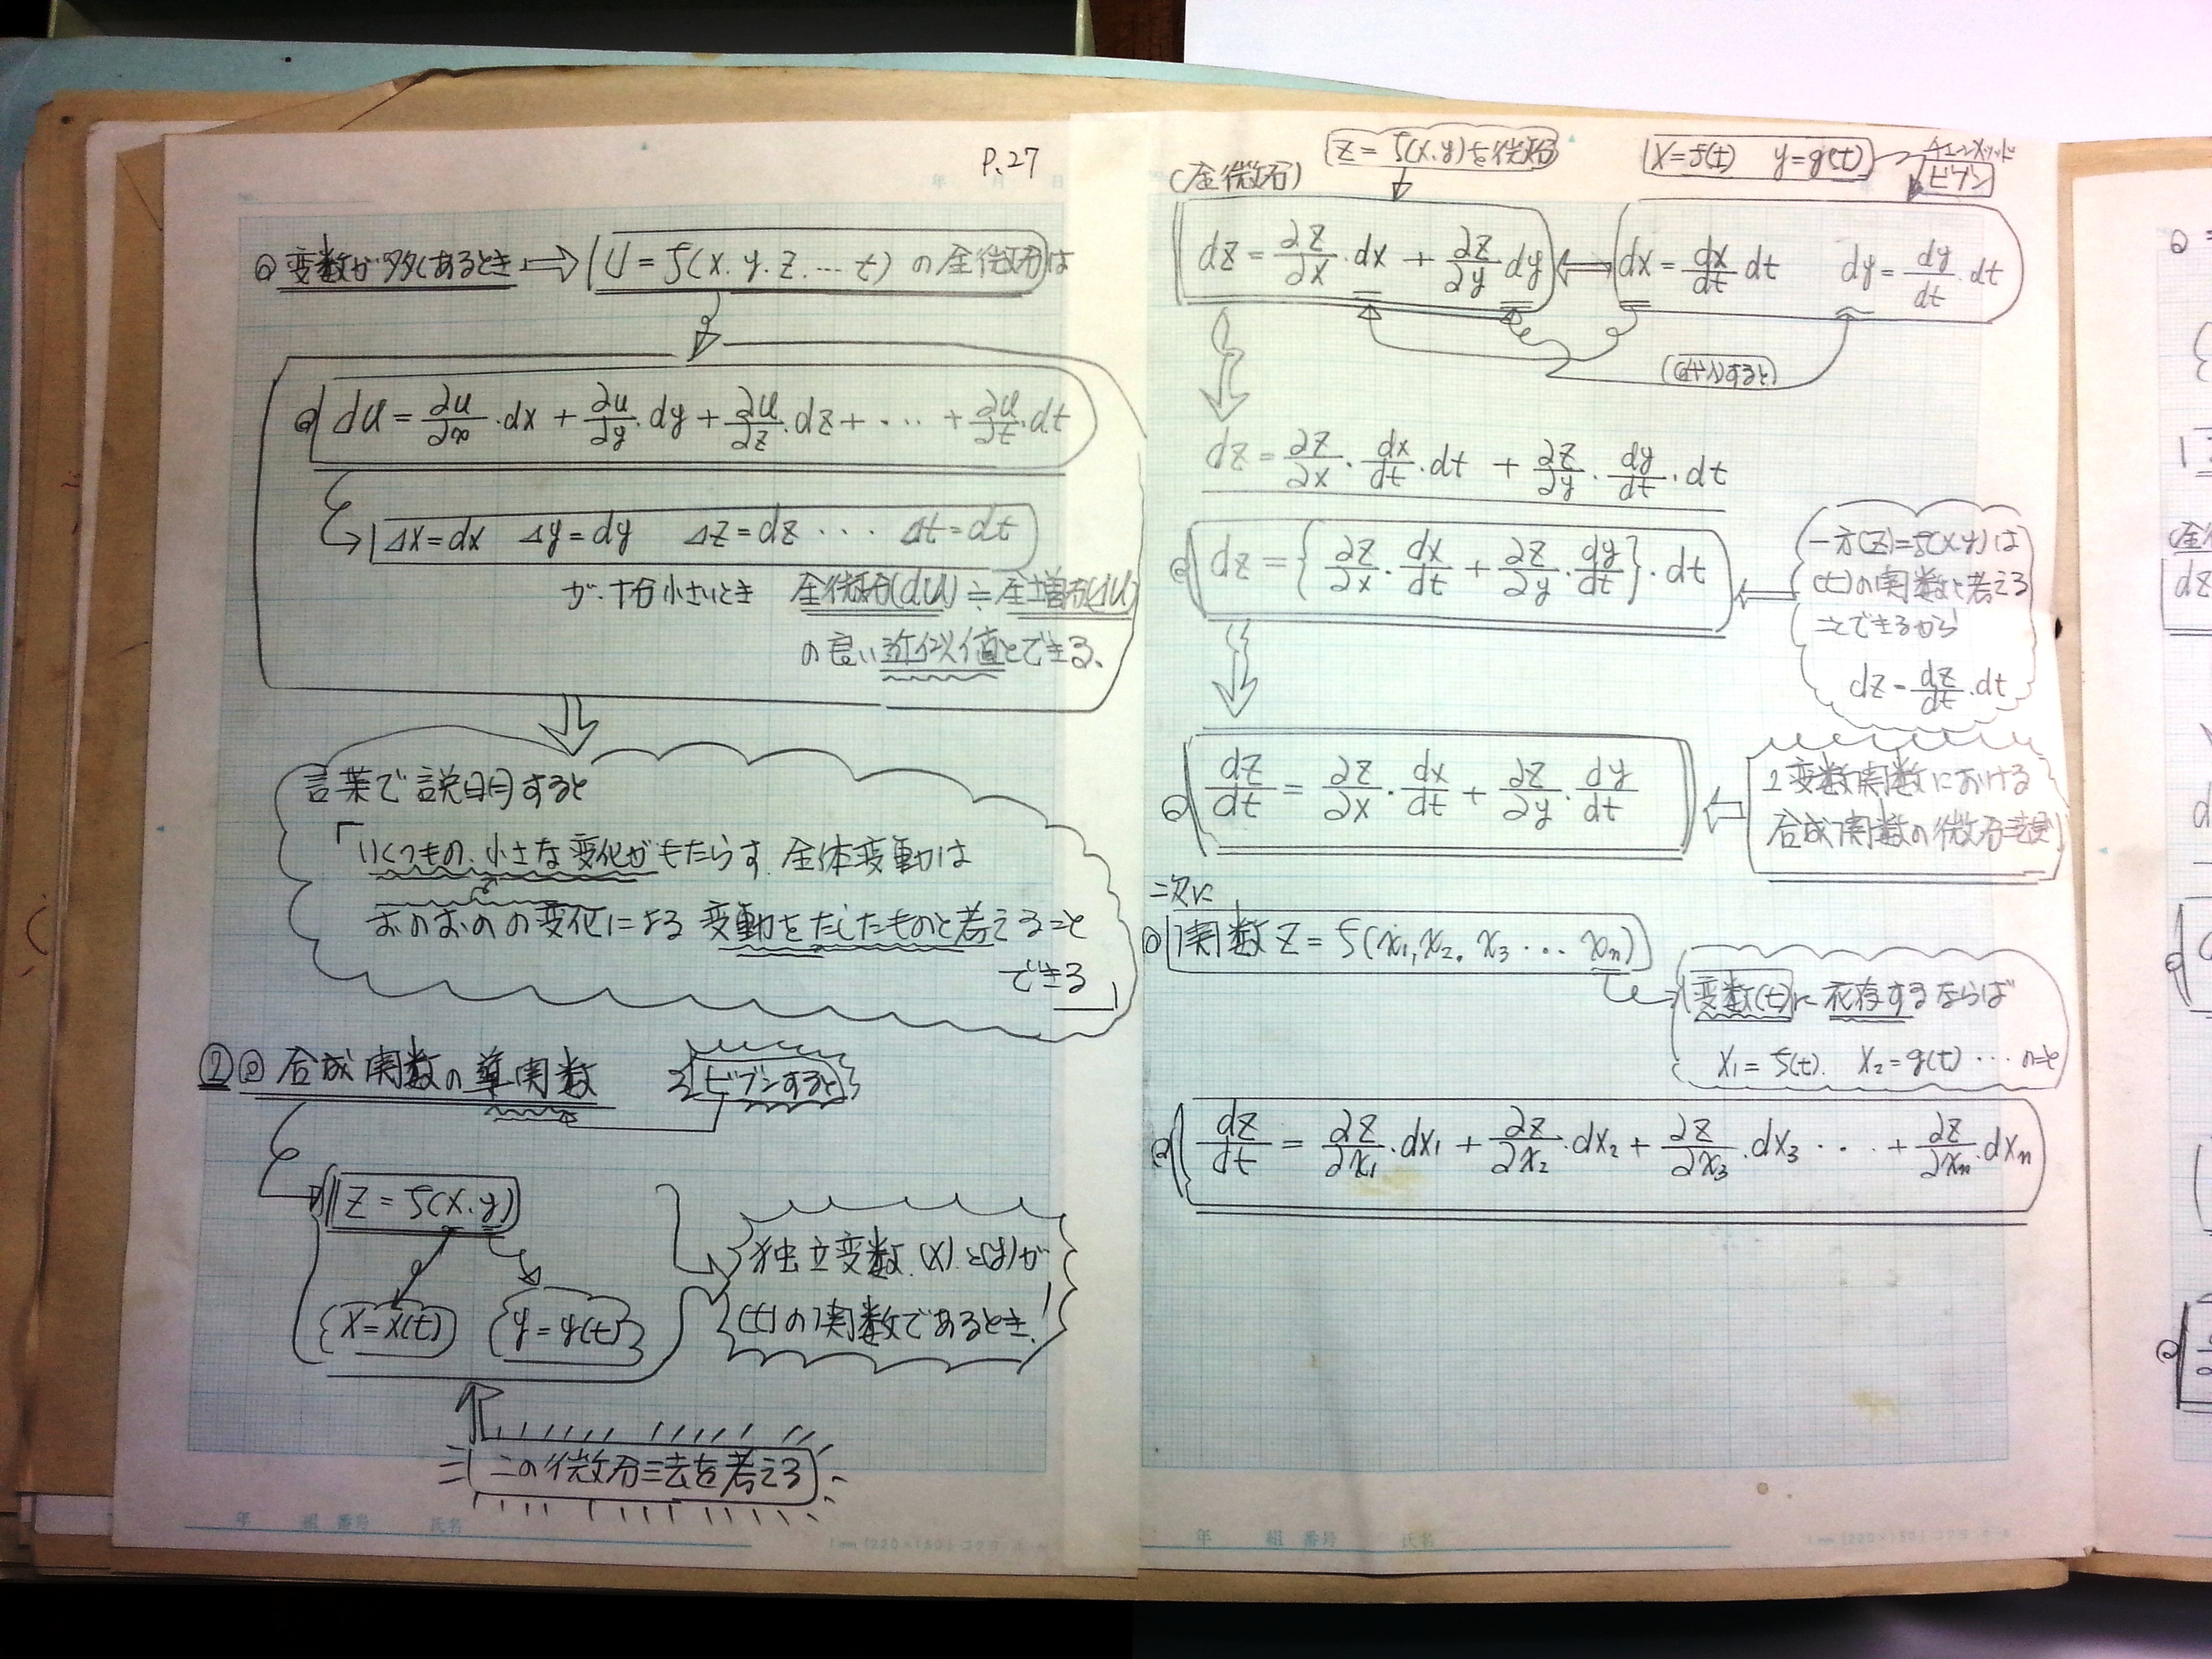 P.27
変数が多くあるとき ⇒ U = f(x. y. z. … t) の全微分は
du = ∂u/∂x · dx + ∂u/∂y · dy + ∂u/∂z · dz + ··· + ∂u/∂t · dt
Δx = dx Δy = dy Δz = dz ··· Δt = dt
が十分小さいとき 全微分(du) ≒ 全増分(Δu)
の良い近似値とできる、
言葉で説明すると
「いくつもの、小さな変化がもたらす、全体変動は
おのおのの変化による変動をたしたものと考えること
できる」
② 合成関数の導関数 ビブンすると
Z = f(x.y)
x = x(t) y = y(t)
独立変数(x)と(y)が
(t)の関数であるとき、
この微分法を考える
年 組 番号 氏名
(全微分) Z = f(x.y)を微分 x = f(t) y = g(t) ビブン
dz = ∂z/∂x · dx + ∂z/∂y dy ⇔ dx = dx/dt dt dy = dy/dt · dt
(代入すると)
dz = ∂z/∂x · dx/dt · dt + ∂z/∂y · dy/dt · dt
dz = { ∂z/∂x · dx/dt + ∂z/∂y · dy/dt } · dt
一方(z)=f(x.y)は
(t)の関数と考える
ことできるから
dz = dz/dt · dt
dz/dt = ∂z/∂x · dx/dt + ∂z/∂y · dy/dt
2変数関数における
合成関数の微分法
二次に
関数 Z = f(x₁, x₂, x₃ ··· xn)
変数(t)に依存するならば
x₁ = f(t). x₂ = g(t) ···のとき
dz/dt = ∂z/∂x₁ · dx₁ + ∂z/∂x₂ · dx₂ + ∂z/∂x₃ · dx₃ ··· + ∂z/∂xn · dxn
年 組 番号 氏名